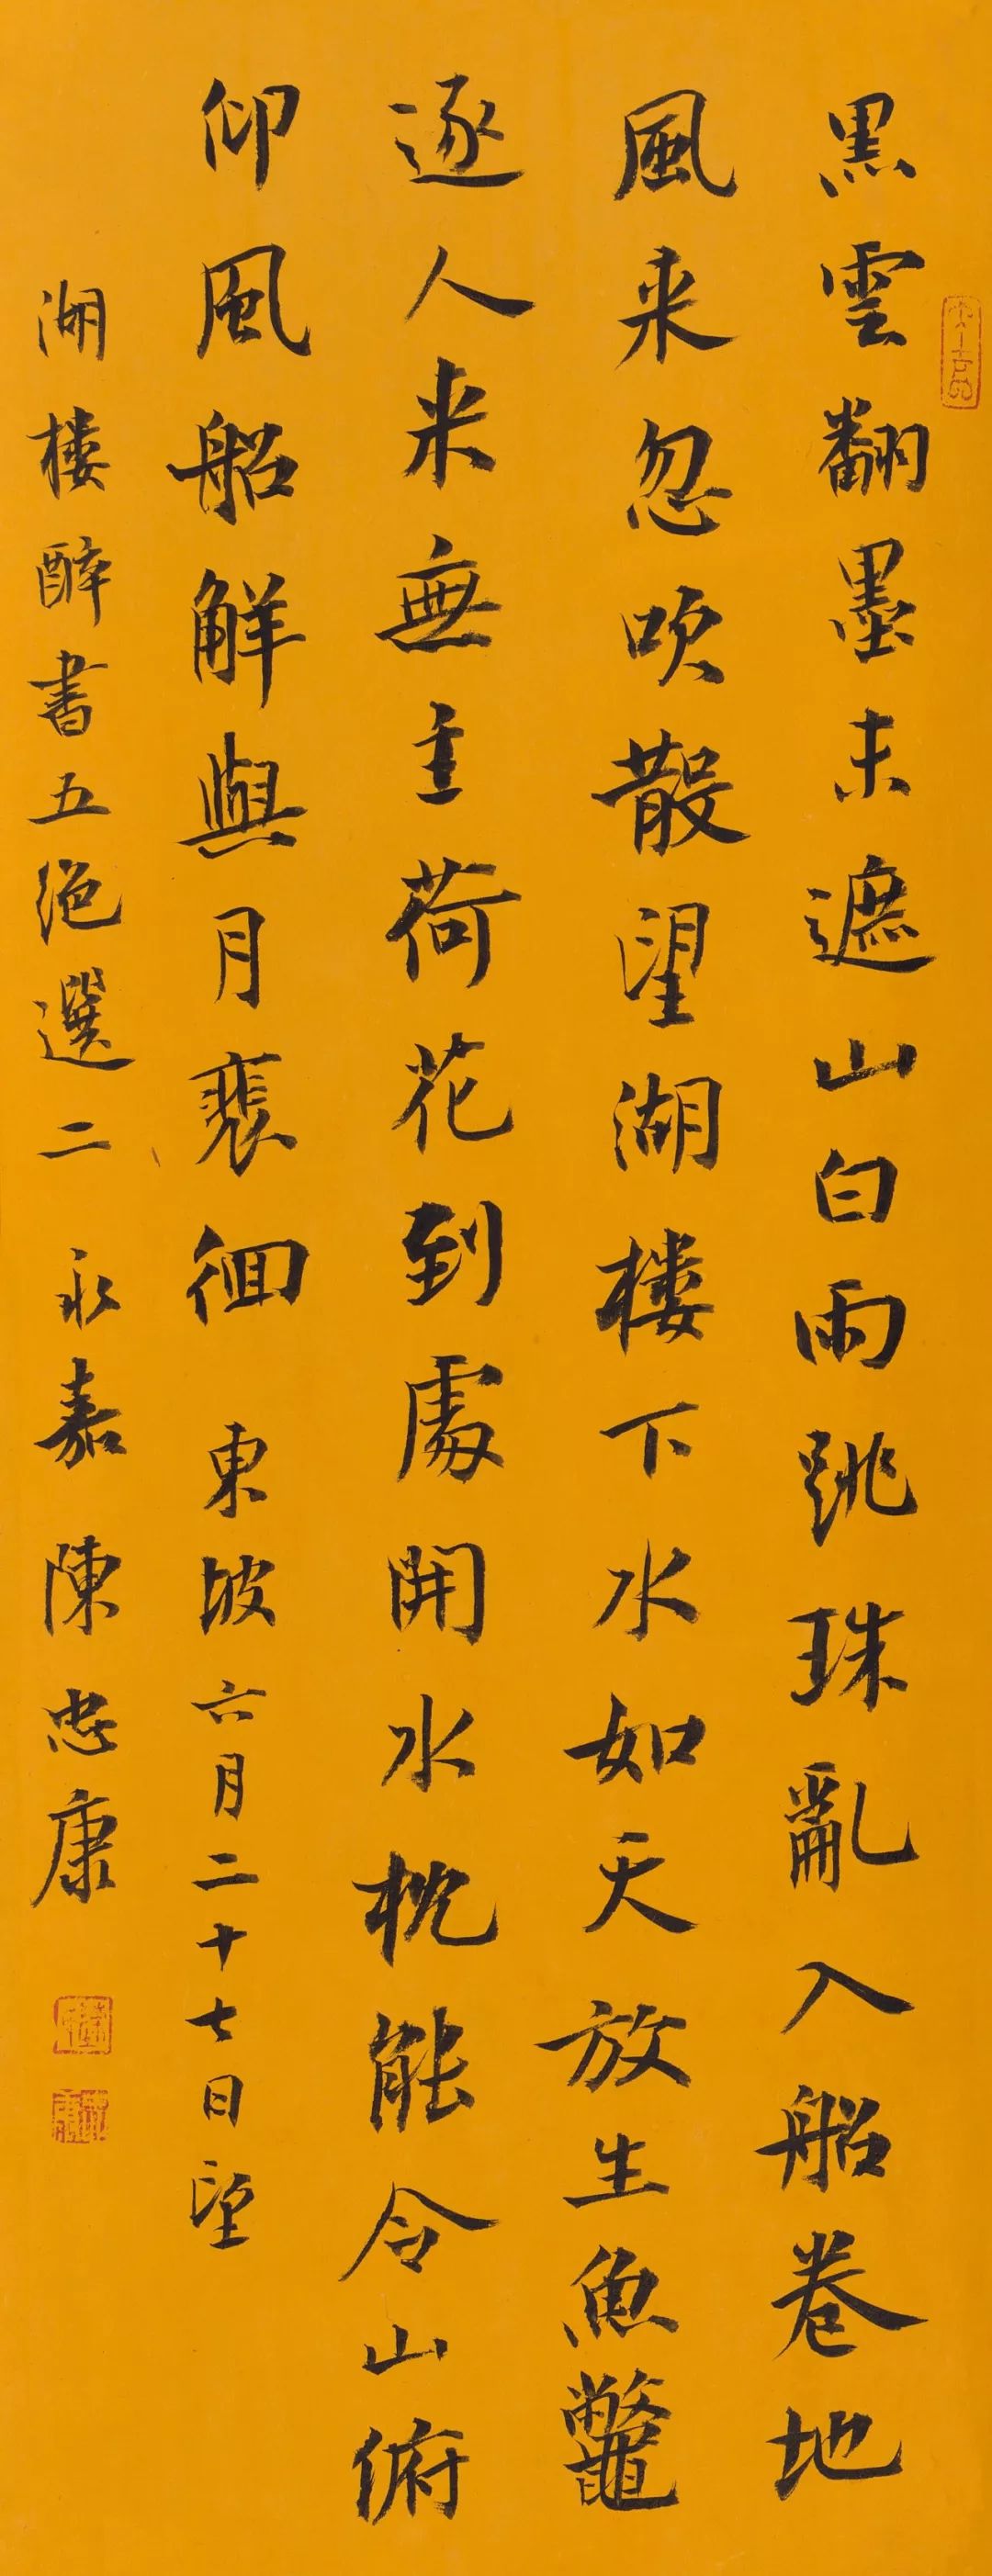 黑雲翻墨未遮山白雨跳珠亂入船卷地
風来忽吹散望湖樓下水如天放生魚鼈
逐人来無主荷花到處開水枕能令山俯
仰風船解與月裴徊 東坡六月二十七日望
湖樓醉書五绝選二 永嘉陳忠康